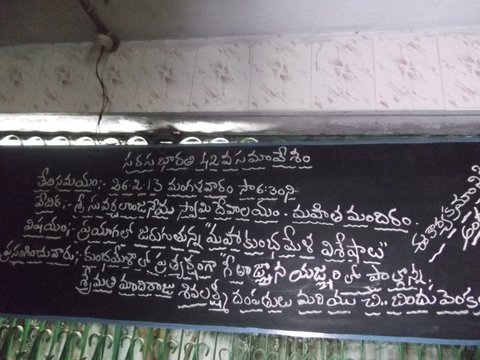 సరసభారతి 42వ సమావేశం
తేదీసమయం:- 26-2-13 మంగళవారం సా6:30ని
వేదిక:- శ్రీ సువర్చలాంజనేయ స్వామి దేవాలయం. మహిత మందిరం.
విషయం:- ప్రయాగలో జరుగుతున్న "మహాకుంభమేళ విశేషాలు"
ప్రసంగించువారు:- కుంభమేళాలో ప్రత్యక్షంగా "గీతాజ్ఞాన యజ్ఞం లో పాల్గొన్న
శ్రీమతి మాదిరాజు శివలక్ష్మి దంపతులు మరియు చి.. బిందు వెంకట